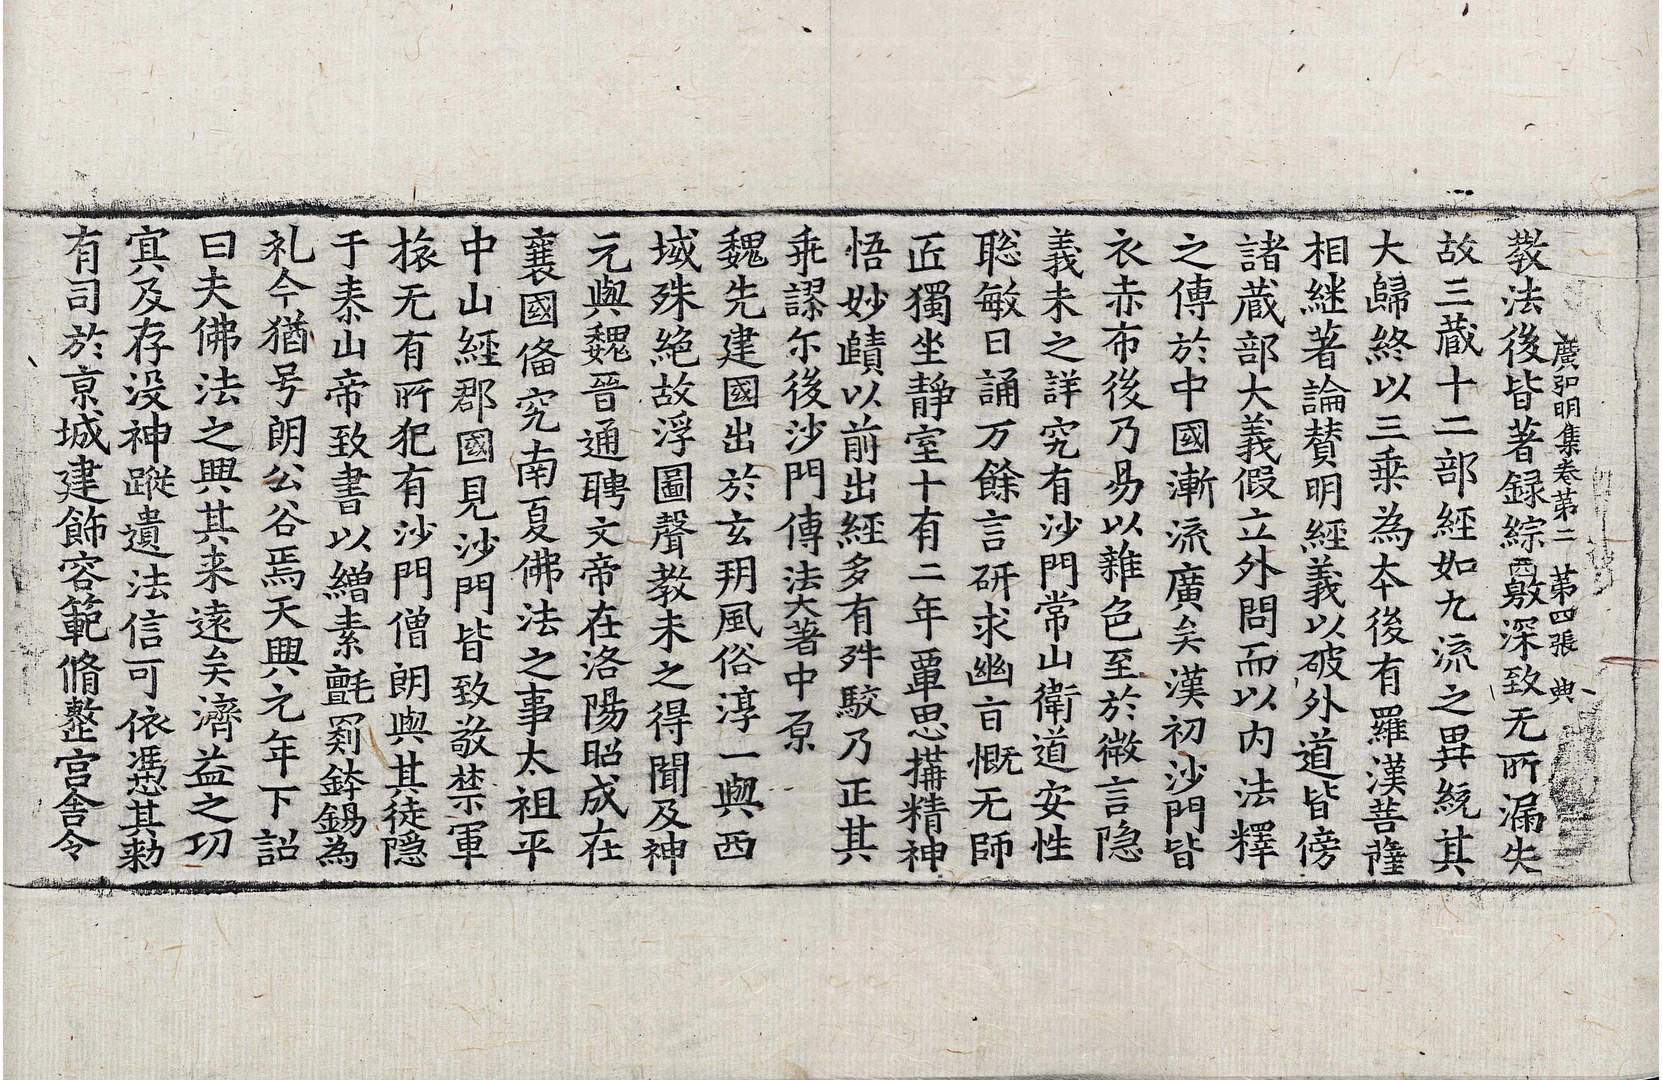 廣弘明集卷第二 第四張 典
教法後皆著録綜覈深致无所漏失
故三蔵十二部經如九流之異統其
大歸終以三乗為本後有羅漢菩薩
相継著論賛明經義以破外道皆傍
諸蔵部大義假立外問而以内法釋
之傳於中國漸流廣矣漢初沙門皆
衣赤布後乃易以雜色至於微言隐
義未之詳究有沙門常山衛道安性
聡敏日誦万餘言研求幽旨慨无師
匠獨坐静室十有二年覃思搆精神
悟妙賾以前出經多有舛駮乃正其
乖謬尓後沙門傳法大著中原
魏先建國出於玄朔風俗淳一與西
域殊絶故浮圖聲教未之得聞及神
元與魏晉通聘文帝在洛陽昭成在
襄國俻究南夏佛法之事太祖平
中山經郡國見沙門皆致敬禁軍
旅无有所犯有沙門僧朗與其徒隠
于泰山帝致書以繒素氈罽鉢錫為
礼今猶号朗公谷焉天興元年下詔
曰夫佛法之興其来遠矣濟益之功
冥及存没神蹤遺法信可依憑其勑
有司於京城建飾容範脩整宫舎令